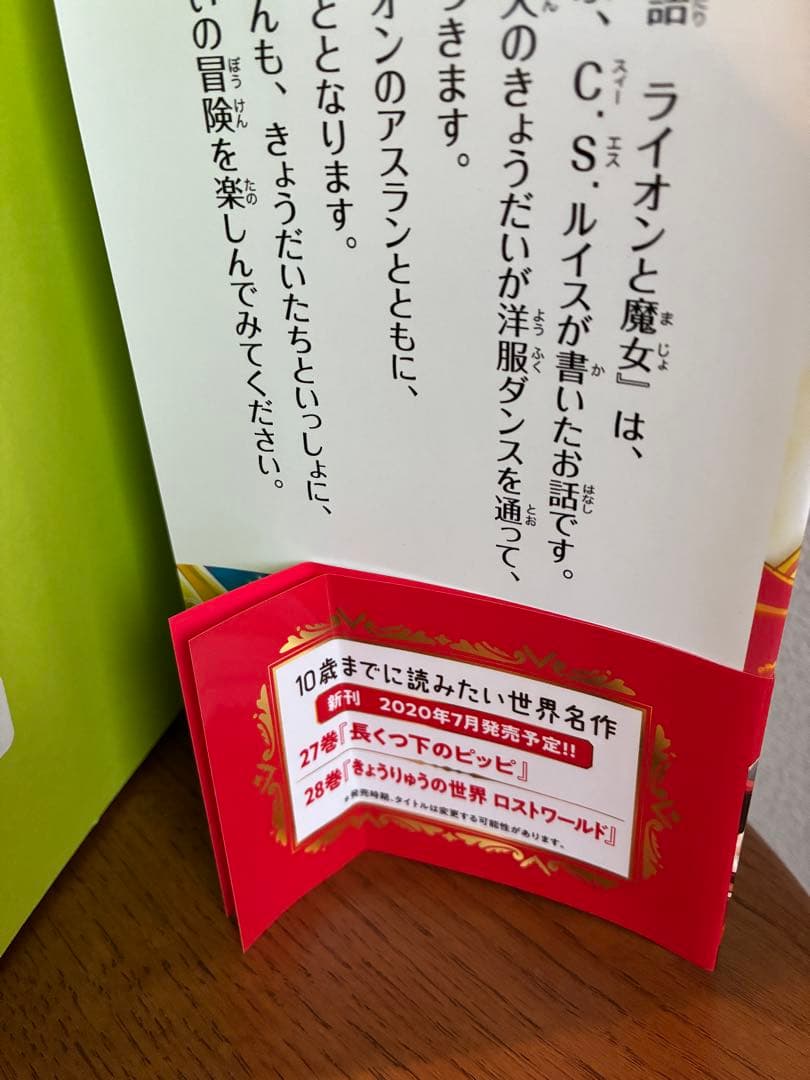 話 ライオンと魔女』は、
C.S.ルイスが書いたお話です。
人のきょうだいが洋服ダンスを通って、
つきます。
オンのアスランとともに、
ととなります。
んも、きょうだいたちといっしょに、
いの冒険を楽しんでみてください。
10歳までに読みたい世界名作
新刊 2020年7月発売予定!!
27巻『長くつ下のピッピ』
28巻『きょうりゅうの世界 ロストワールド』
※発売時期、タイトルは変更する可能性があります。